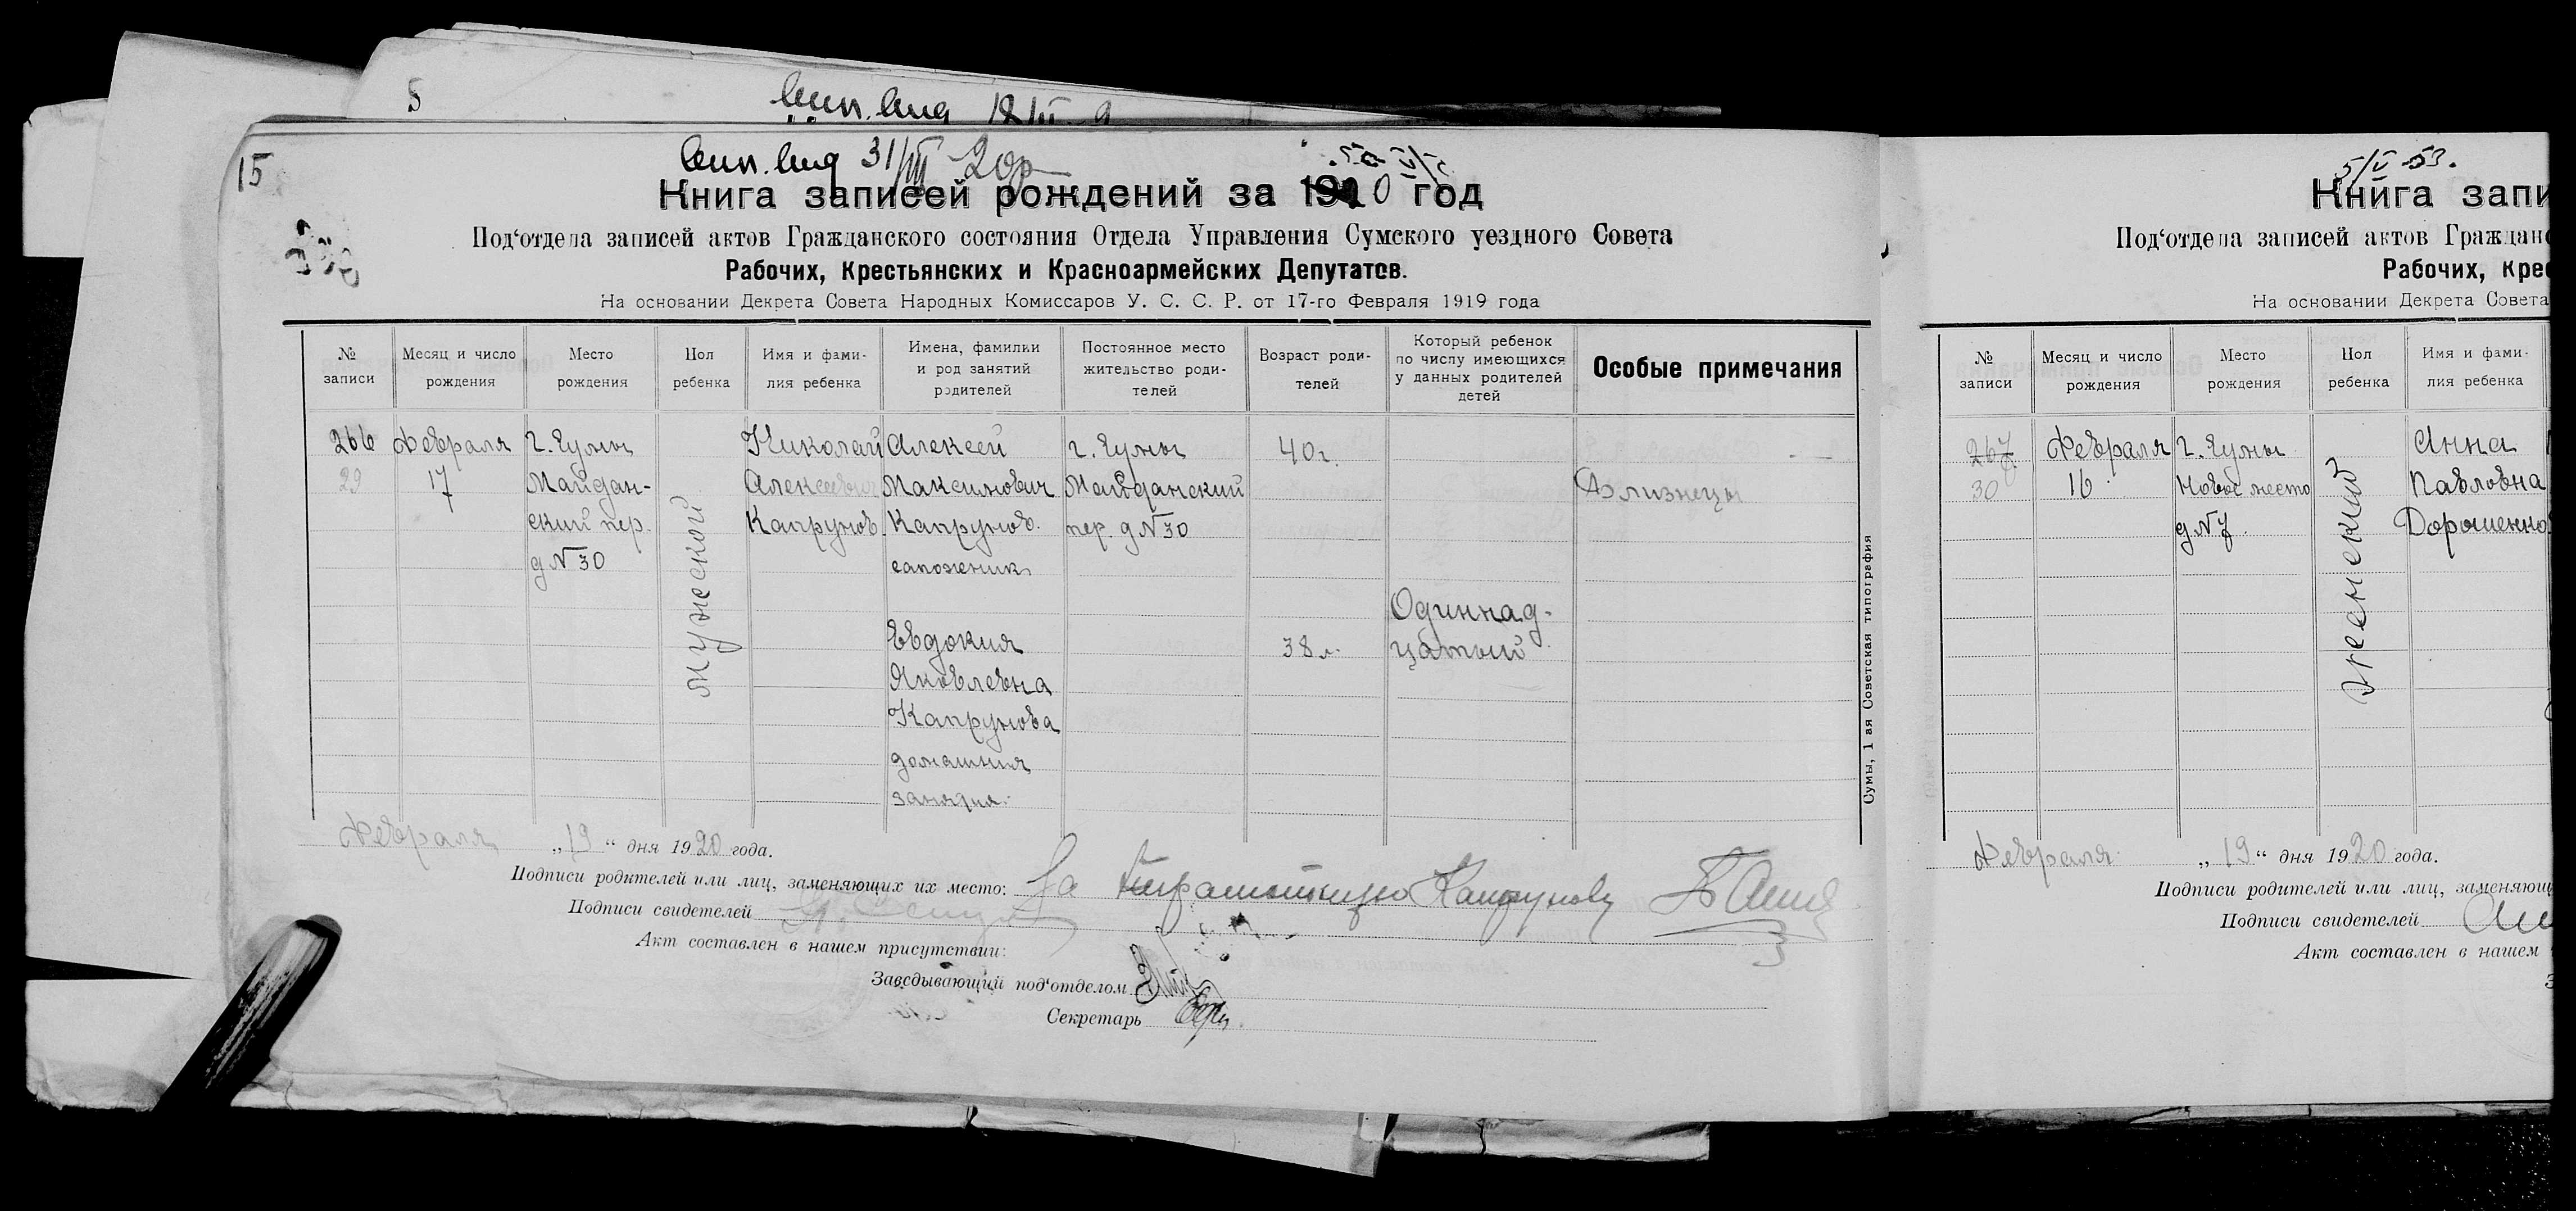 5
15
31/III 20 г
Книга записей рождений за 1920 год
Под‘отдела записей актов Гражданского состояния Отдела Управления Сумского уездного Совета
Рабочих, Крестьянских и Красноармейских Депутатов.
На основании Декрета Совета Народных Комиссаров У. С. С. Р. от 17-го Февраля 1919 года
№ записи
Месяц и число рождения
Место рождения
Пол ребенка
Имя и фами-
лия ребенка
Имена, фамилки
и род занятий
родителей
Постоянное место
жительство роди-
телей
Возраст роди-
телей
Который ребенок
по числу имеющихся
у данных родителей
детей
Особые примечания
266
29
Февраля
17
г. Сумы
Майдан-
ский пер.
д N 30
мужской
Николай
Алексеевич
Капрунов.
Алексей
Максимович
Капрунов.
сапожник
Евдокия
Яковлевна
Капрунова
домашния
занятия.
г. Сумы
Майданский
пер. д N 30
40 г.
38 л.
Одиннад-
цатый
Близнецы
Сумы, 1 ая Советская типография
Февраля „19“ дня 1920 года.
Подписи родителей или лиц, заменяющих их место: За неграмотную Капрунову
Подписи свидетелей
Акт составлен в нашем присутствии:
Заведывающий под‘отделом
Секретарь
5/V 53.
Книга запи
Под‘отдела записей актов Граждан
Рабочих, Крес
На основании Декрета Совета
№ записи
Месяц и число рождения
Место рождения
Пол ребенка
Имя и фами-
лия ребенка
267
30
Февраля
16
г. Сумы
Новое место
д N 7.
женский
Анна
Павловна
Дорошенко
Февраля „19“ дня 1920 года.
Подписи родителей или лиц, заменяющ
Подписи свидетелей
Акт составлен в нашем